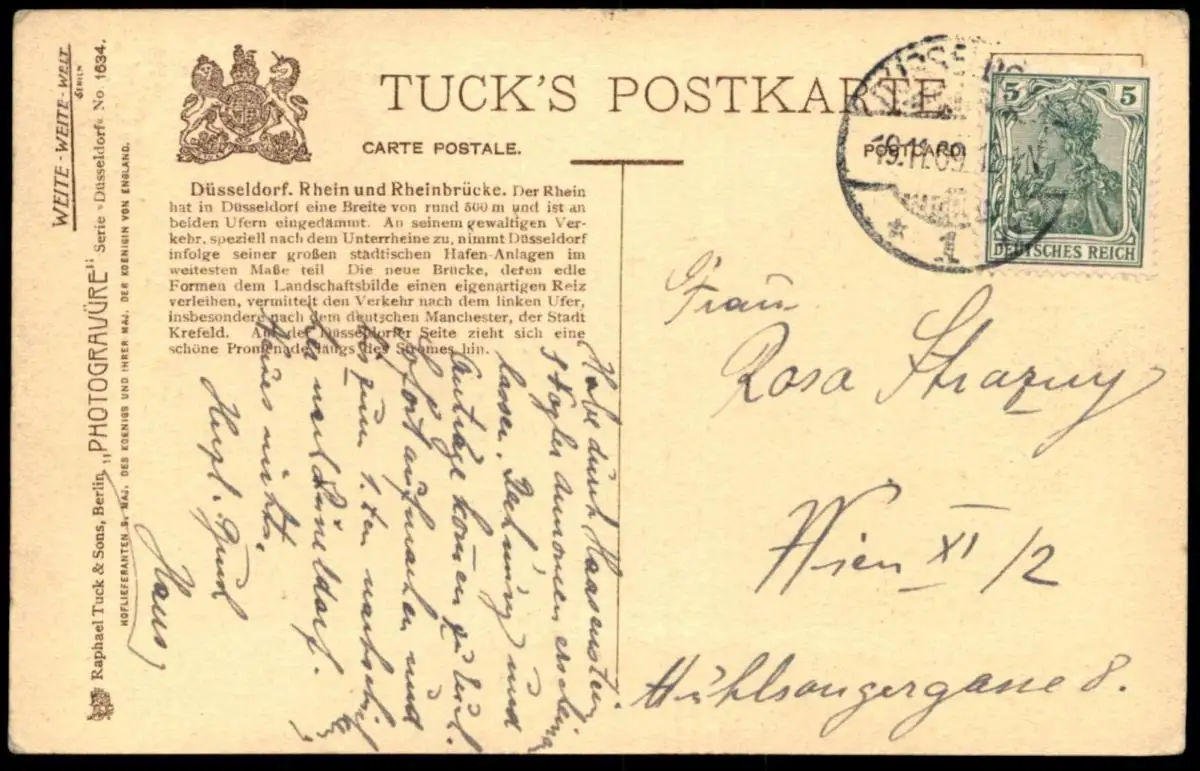 TUCK'S POSTKARTE
CARTE POSTALE.
POSTCARD.
WEITE-WEITE-WELT
SERIEN
Raphael Tuck & Sons, Berlin. „PHOTOGRAVÜRE" Serie „Düsseldorf" No. 1634.
HOFLIEFERANTEN S. MAJ. DES KOENIGS UND IHRER MAJ. DER KOENIGIN VON ENGLAND.
Düsseldorf. Rhein und Rheinbrücke. Der Rhein
hat in Düsseldorf eine Breite von rund 500 m und ist an
beiden Ufern eingedämmt. An seinem gewaltigen Ver-
kehr, speziell nach dem Unterrheine zu, nimmt Düsseldorf
infolge seiner großen städtischen Hafen-Anlagen im
weitesten Maße teil Die neue Brücke, deren edle
Formen dem Landschaftsbilde einen eigenartigen Reiz
verleihen, vermittelt den Verkehr nach dem linken Ufer,
insbesondere nach dem deutschen Manchester, der Stadt
Krefeld. Auf der Düsseldorfer Seite zieht sich eine
schöne Promenade längs des Stromes hin.
5 5
DEUTSCHES REICH
19.11.09.
* 1
Frau
Rosa
Wien XI/2
8.
Habe durch Haasenstein
Vogler annoncen
lassen. und
Anträge
sofort aufmachen und
zum 1. ten
nach Düsseldorf.
nichts.
Hans